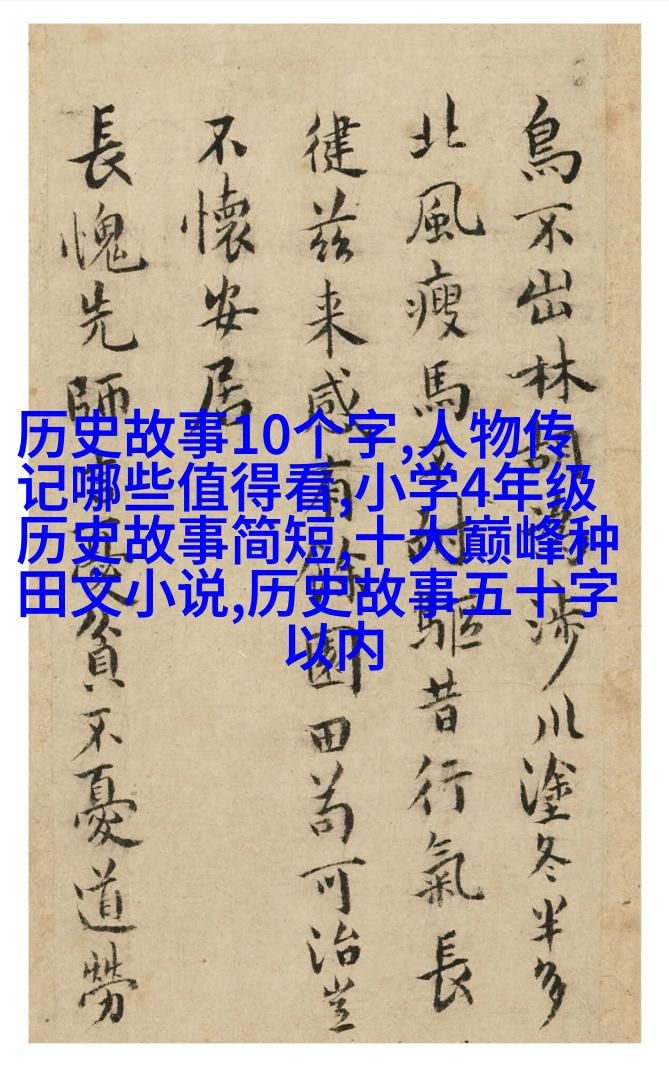 鳥不出林胡涉川塗冬半多
北風瘦馬驅昔行氣長
徤茲来感有餘園田苟可治豈
不懷安居
長愧先師貧不憂道勞
历史故事10个字,人物传
记哪些值得看,小学4年级
历史故事简短,十大巅峰种
田文小说,历史故事五十字
以内